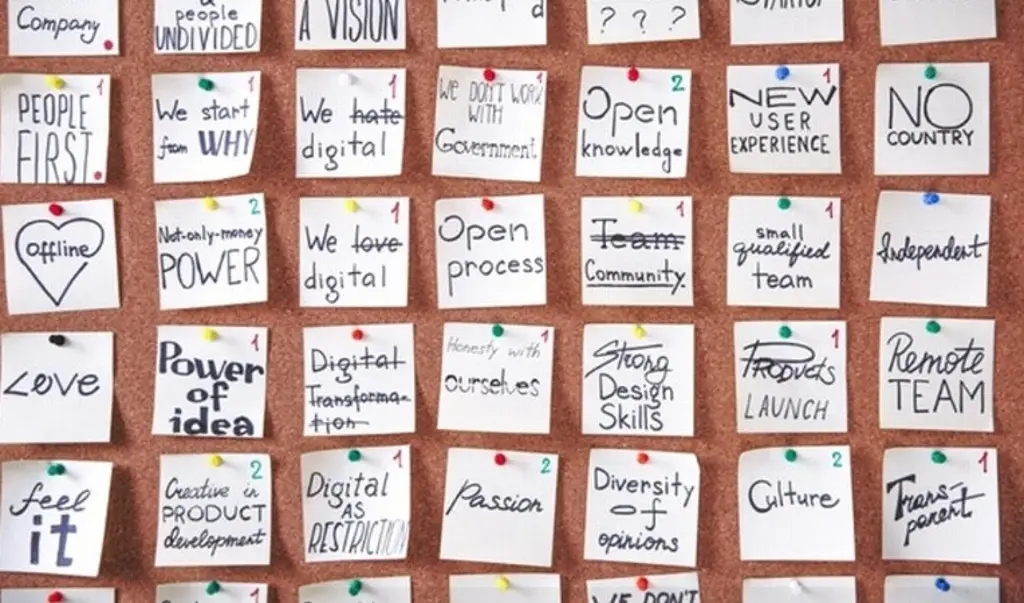 Company
people
UNDIVIDED
A VISION
? ? ?
PEOPLE 1
FIRST.
1
We start
from WHY
1
We hate
digital
1
WE DON'T WORK
WITH
Government
2
Open
knowledge
1
NEW
USER
EXPERIENCE
NO
COUNTRY
offline
2
Not-only-money
POWER
1
We love
digital
Open
process
1
Team
Community
1
small
qualified
team
Independent
Love
1
Power
of
idea
Digital
Transforma-
tion
1
Honesty with
ourselves
Strong
Design
Skills
1
Products
LAUNCH
Remote
TEAM
feel
it
2
Creative in
PRODUCT
development
1
Digital
AS
RESTRICTION
2
Passion
Diversity
of
opinions
2
Culture
1
Trans-
parent
1
1
WE DON'T